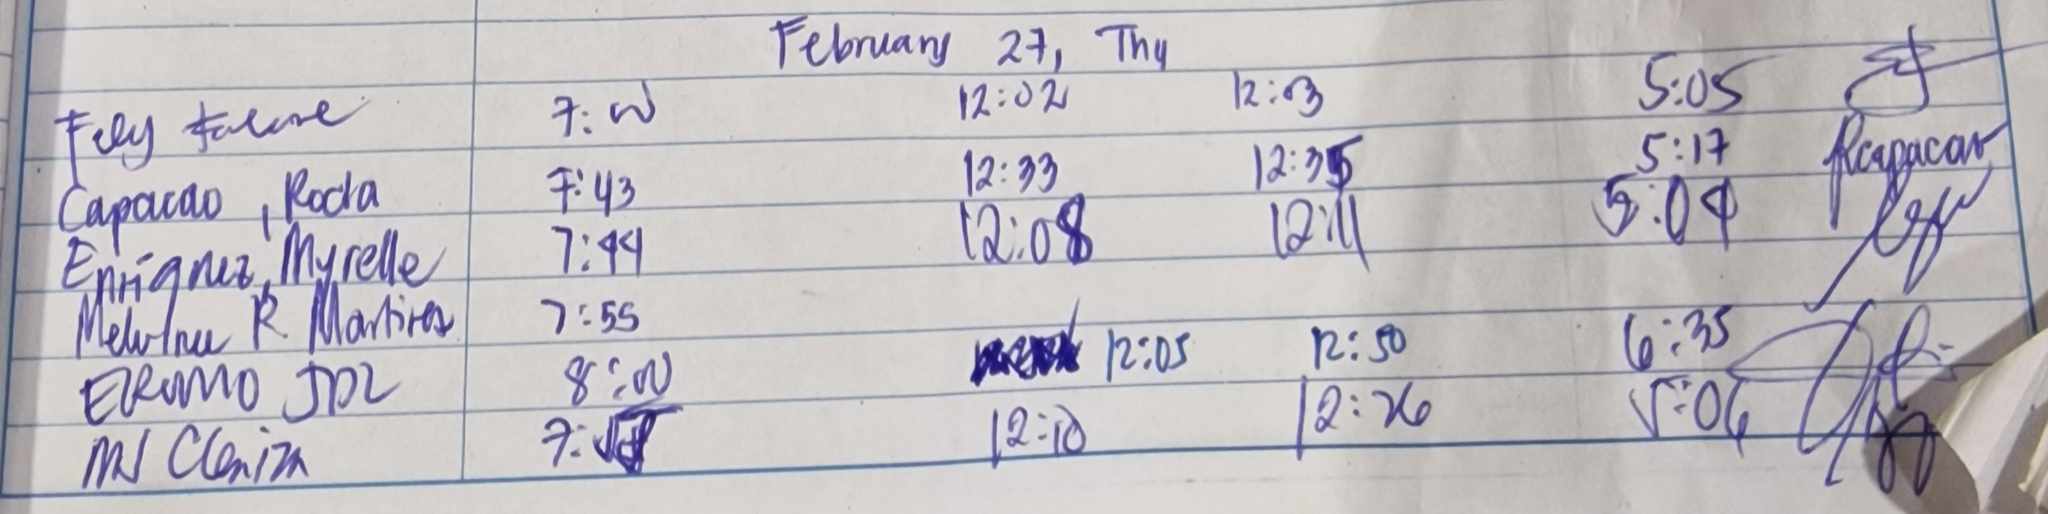 February 27, Thu
Fely 7:00 12:02 12:03 5:05
Capacao, Roda 7:43 12:33 12:35 5:17 Rcapacao
Enriquez, Myrelle 7:44 12:08 12:11 5:04
R. Martirez 7:55
JDL 8:00 12:05 12:50 6:35
MJ Cleniza 7: 12:10 12:26 5:06